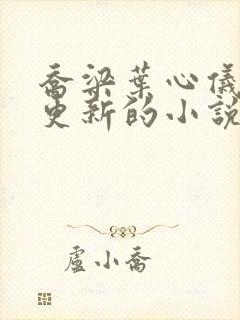 喬梁葉心儀
更新的小說
盧小喬